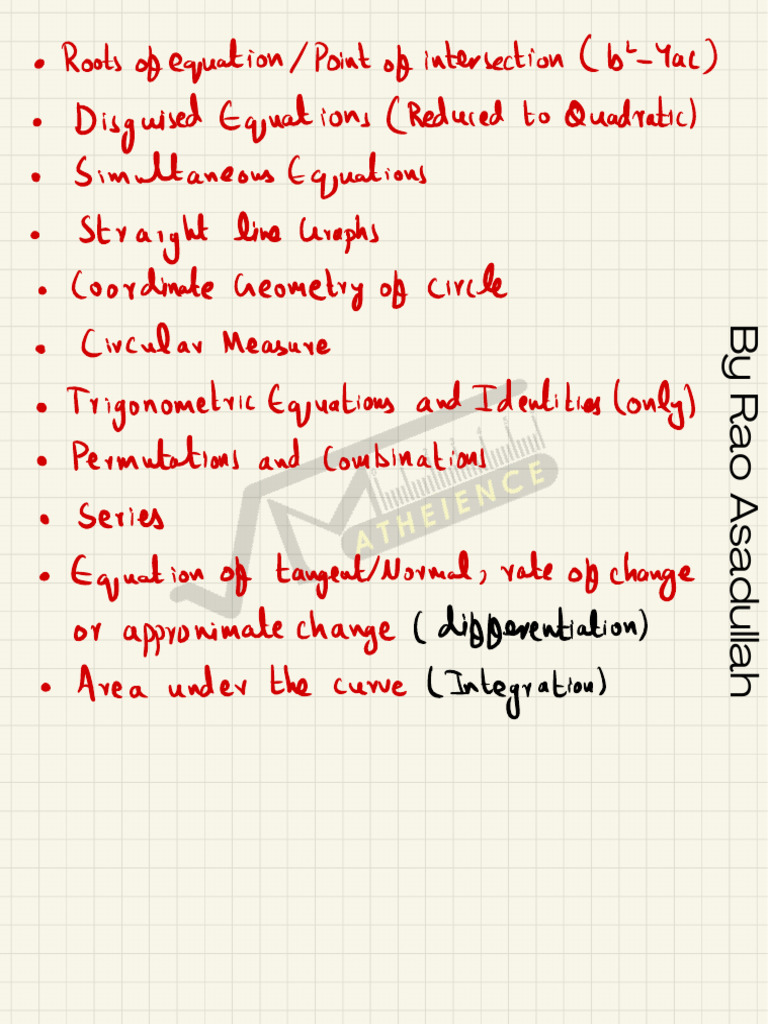 • Roots of equation/Point of intersection (b²-4ac)
• Disguised Equations (Reduced to Quadratic)
• Simultaneous Equations
• Straight line Graphs
• Coordinate Geometry of circle
• Circular Measure
• Trigonometric Equations and Identities (only)
• Permutations and Combinations
• Series
• Equation of tangent/Normal, rate of change
or approximate change (differentiation)
• Area under the curve (Integration)
By Rao Asadullah
MATHEIENCE